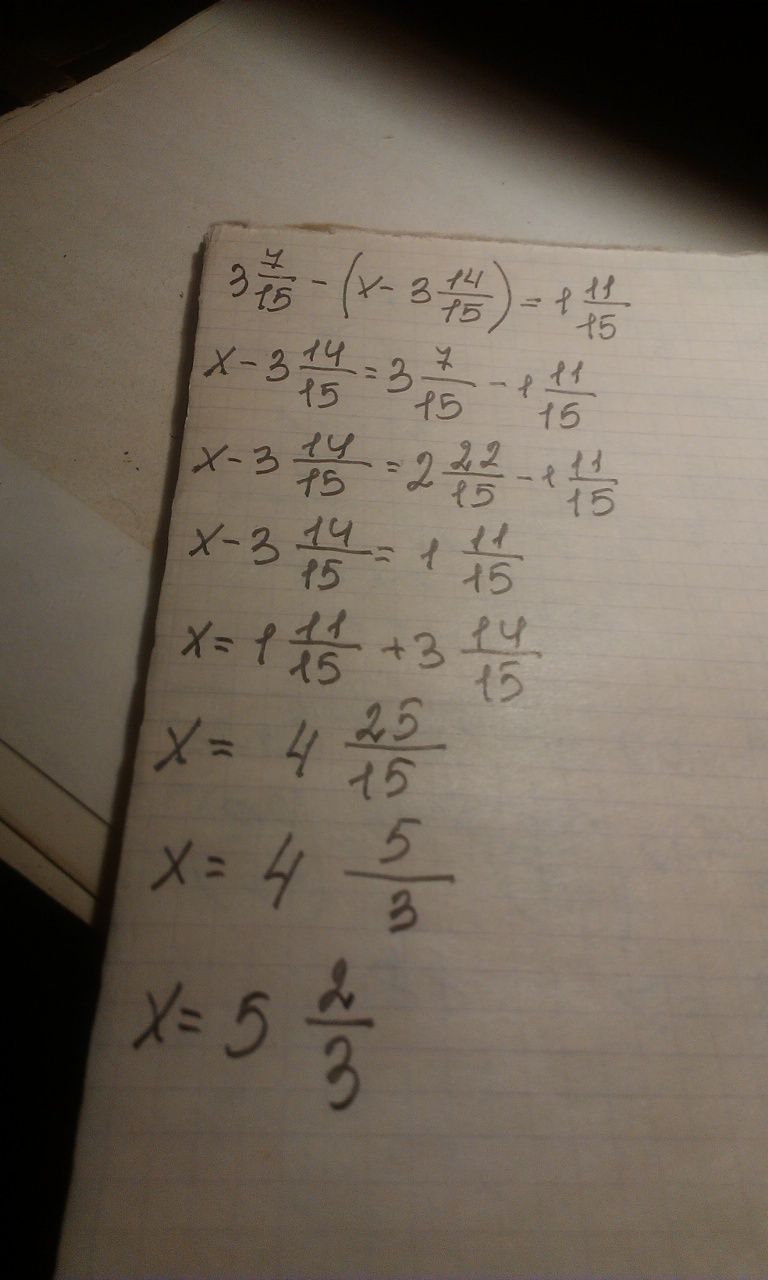 3 7/15 - (x - 3 14/15) = 1 11/15
x - 3 14/15 = 3 7/15 - 1 11/15
x - 3 14/15 = 2 22/15 - 1 11/15
x - 3 14/15 = 1 11/15
x = 1 11/15 + 3 14/15
x = 4 25/15
x = 4 5/3
x = 5 2/3